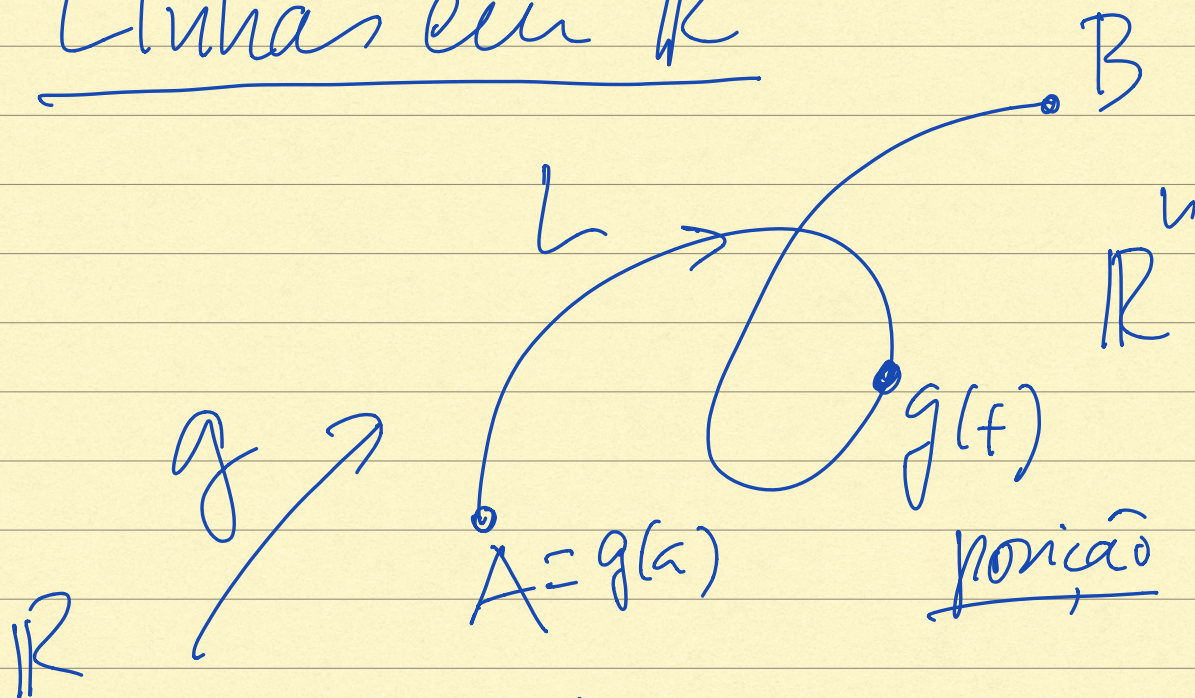 Linhas em R
B
L
n
R
g
g(t)
A = g(a)
posição
R